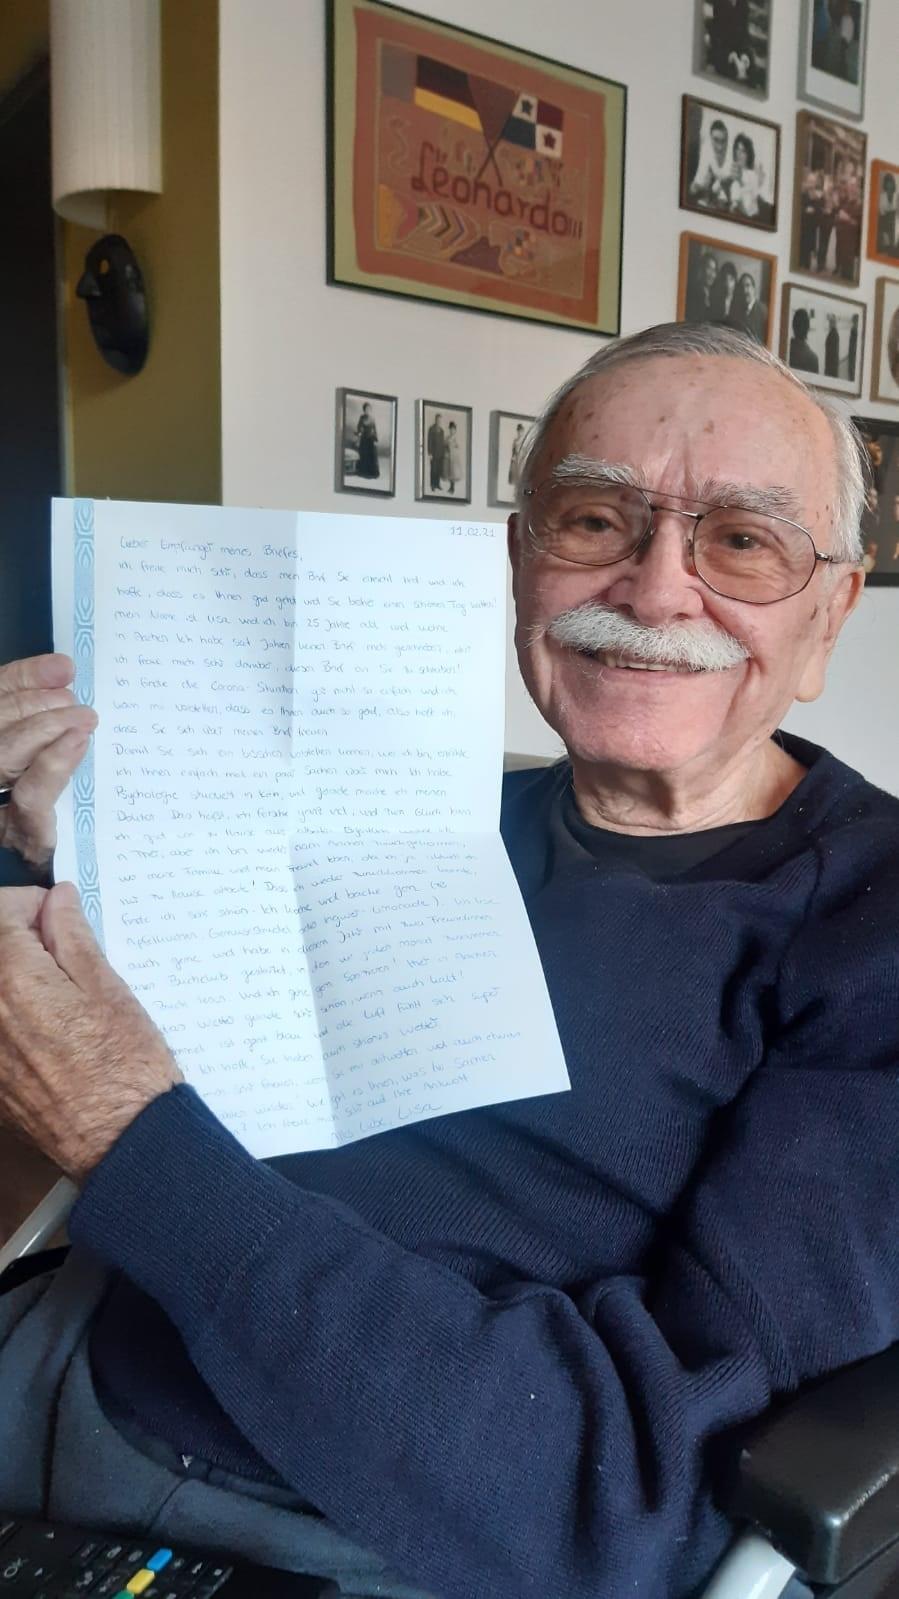 Leonardo
11.02.21
Lieber Empfänger meines Briefes,
ich freue mich sehr, dass mein Brief Sie erreicht hat und ich
hoffe, dass es Ihnen gut geht und Sie bisher einen schönen Tag hatten!
mein Name ist Lisa und ich bin 25 Jahre alt und wohne
in Aachen. Ich habe seit Jahren keinen Brief mehr geschrieben, aber
ich freue mich sehr darüber, diesen Brief an Sie zu schreiben!
Ich finde die Corona-Situation gar nicht so einfach und ich
kann mir vorstellen, dass es Ihnen auch so geht, also hoffe ich,
dass Sie sich über meinen Brief freuen.
Damit Sie sich ein bisschen vorstellen können, wer ich bin, erzähle
ich Ihnen einfach mal ein paar Sachen über mich. Ich habe
Psychologie studiert in Köln, und gerade mache ich meinen
Doktor. Das heißt, ich forsche ganz viel, und zum Glück kann
ich gut von zu Hause aus arbeiten. Eigentlich wohne ich
in Trier, aber ich bin wieder nach Aachen zurückgekommen,
wo meine Familie und mein Freund leben, da ich ja
nur zu Hause arbeite! Dass ich wieder zurückkommen konnte,
finde ich sehr schön. Ich koche und backe gern (z.B.
Apfelkuchen, Gemüsestrudel oder Ingwer-Limonade). Ich lese
auch gerne und habe in diesem Jahr mit zwei Freundinnen
einen Buchclub gestartet, in dem wir jeden Monat zusammen
Buch lesen. Und ich gehe gern spazieren! Hier in Aachen
das Wetter gerade sehr schön, wenn auch kalt!
ist ganz blau und die Luft fühlt sich super
Ich hoffe, Sie haben auch schönes Wetter.
mich sehr freuen, wenn Sie mir antworten und auch etwas
würden! Wie geht es Ihnen, was für Sachen
Ich freue mich sehr auf Ihre Antwort
Alles Liebe, Lisa
OK